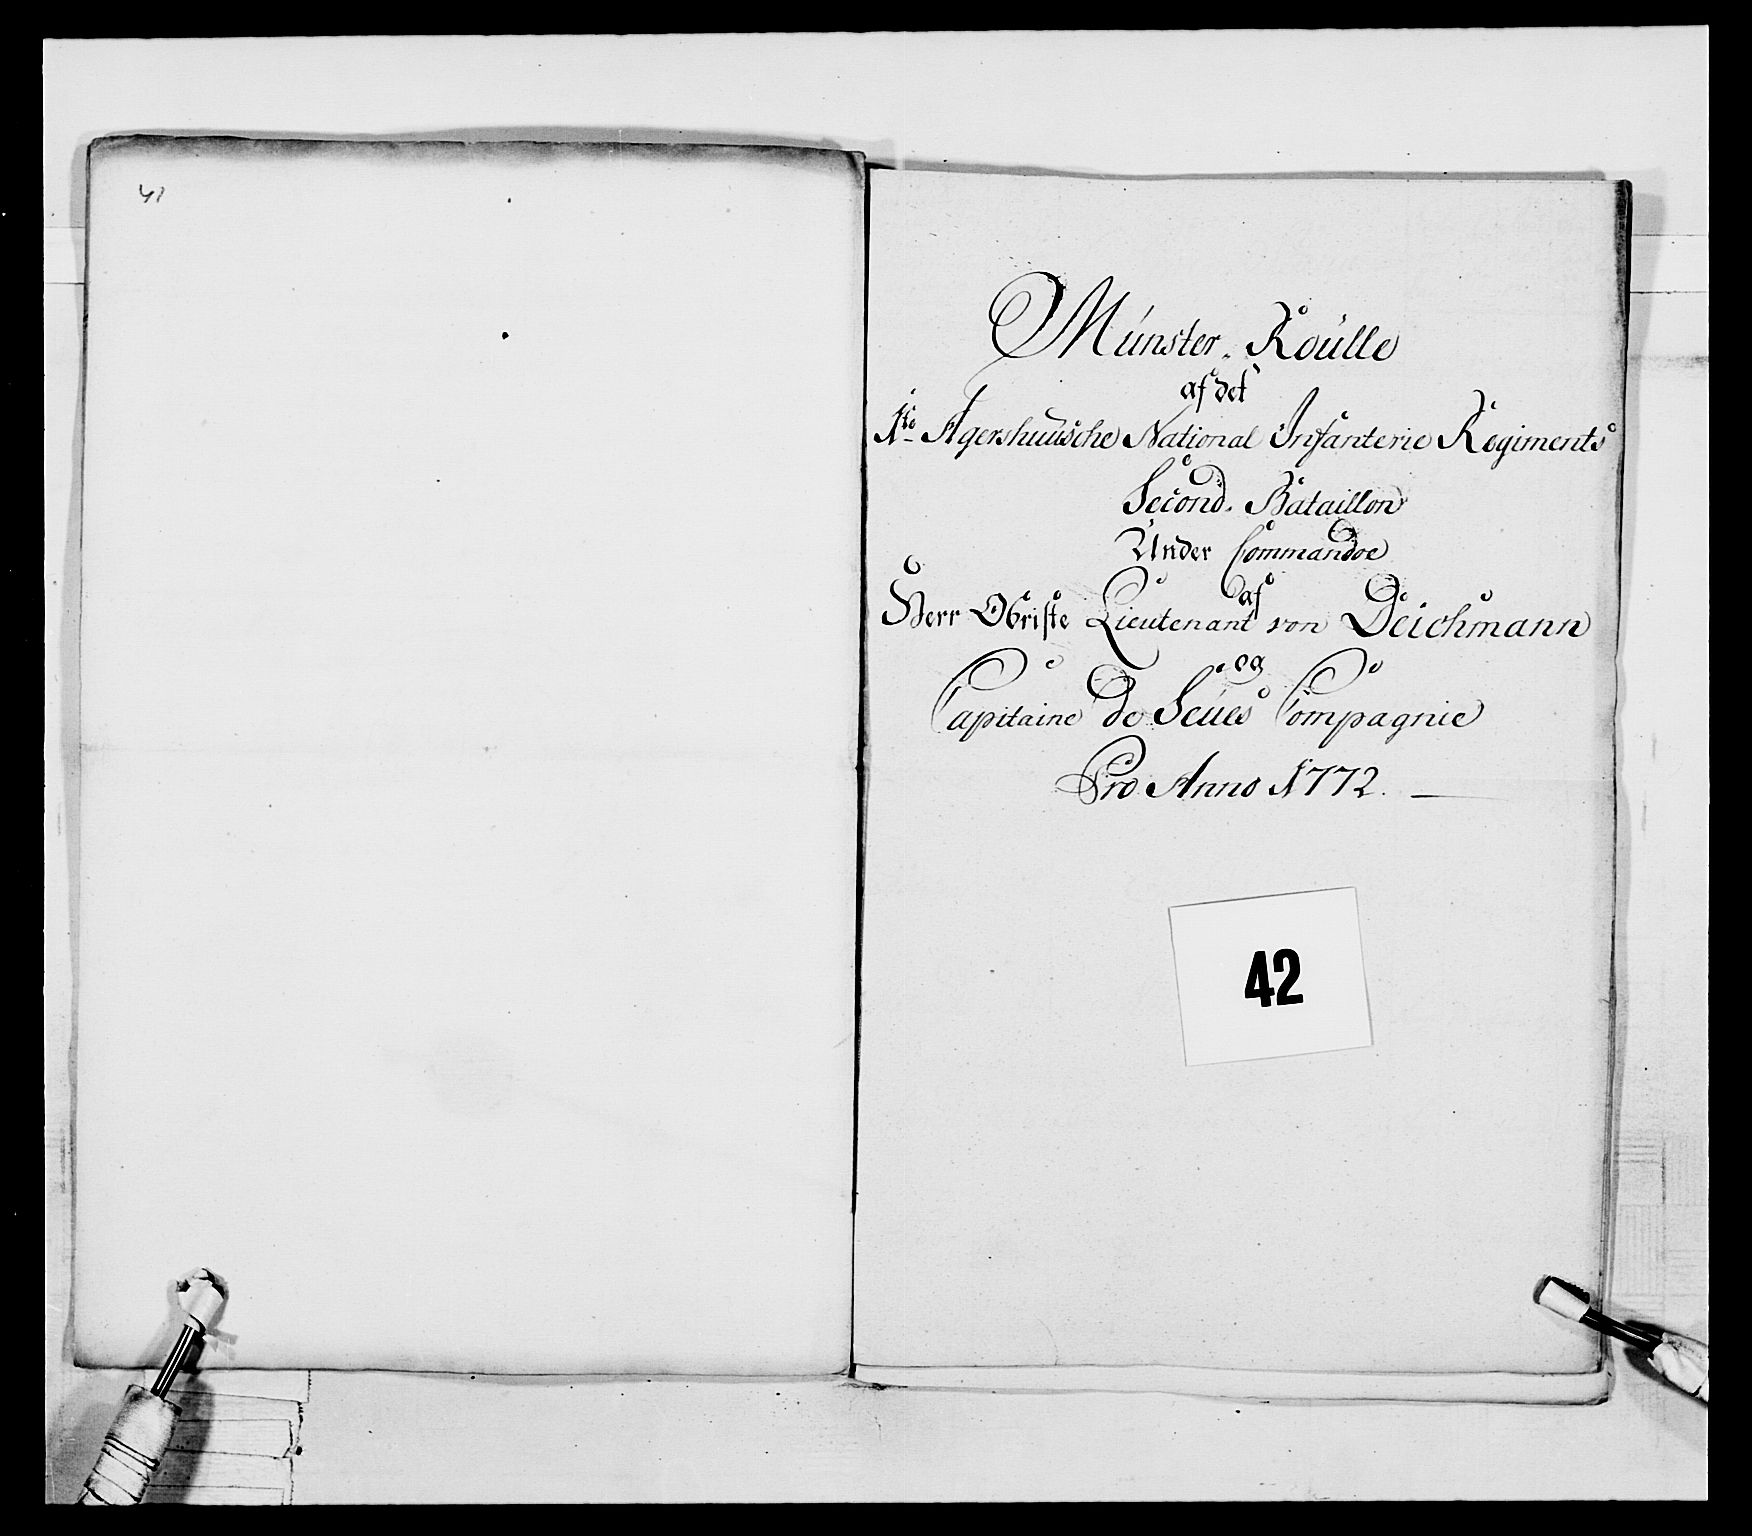 41
Múnster-Roúlle
af det
1ste Agershuusche National Infanterie Regiments
Second. Bataillon
Under Commandoe
af
Herr Obriste Lieutenant von Deichmann
og
Capitaine de Seúes Compagnie
Pro Anno 1772.
42